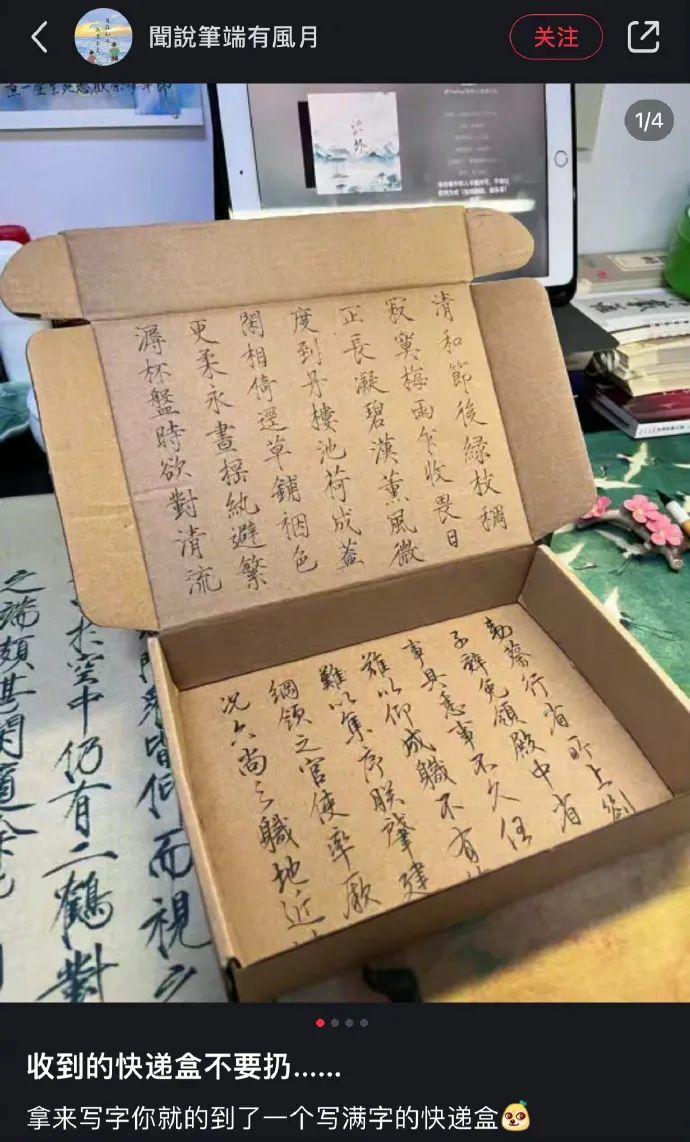 聞說筆端有風月
关注
1/4
清和節後緑枝稠
寂寞梅雨乍收畏日
正長凝碧漢薰風微
度到丹樓池荷成蓋
閑相倚逕草鋪裀色
更柔永晝搖紈避繁
潯杯盤時欲對清流
勅蔡行省所上劄
子辭免領殿中省
事具悉事不久任
難以仰成職不有
難以集序朕肇建
綱領之官使率厥
況六尚之職地近
皆仰而視之
於空中仍有二鶴對
之端頗甚閑適
收到的快递盒不要扔……
拿来写字你就的到了一个写满字的快递盒